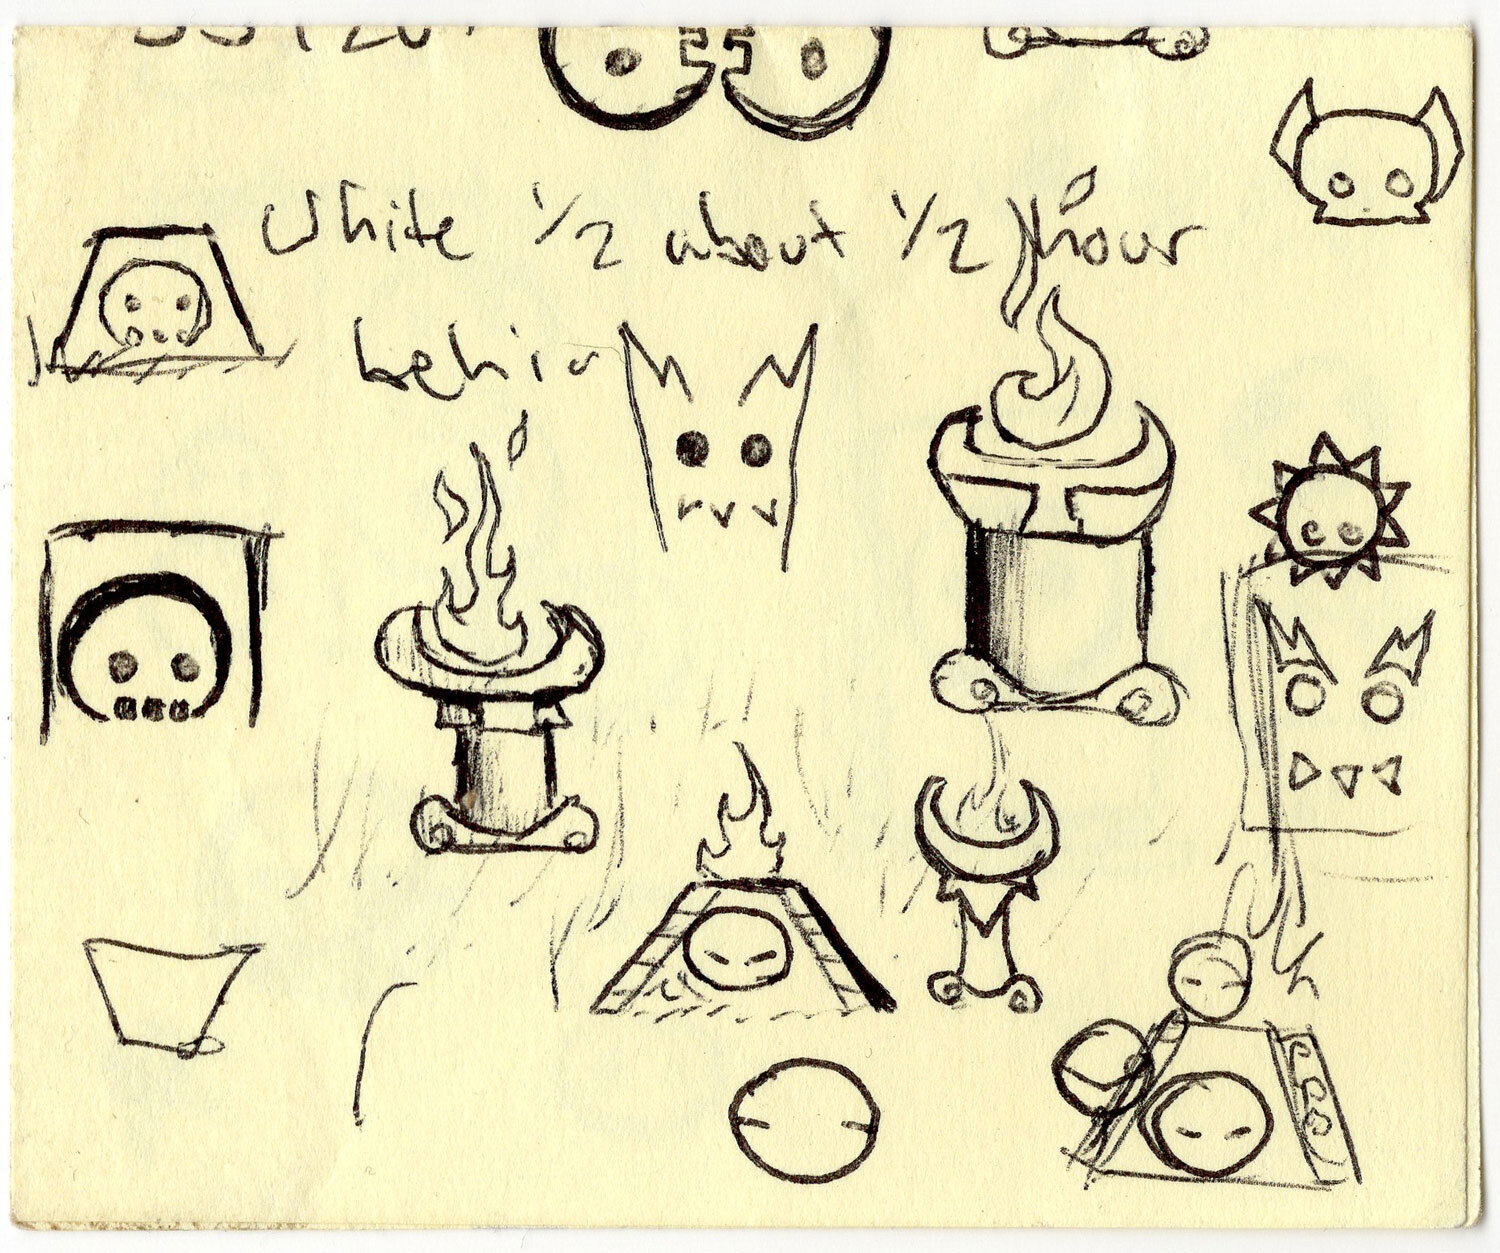 White 1/2 about 1/2 hour
behin